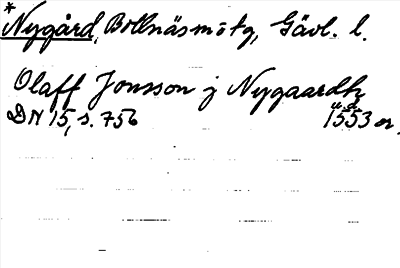 * Nygård, Bollnäs m : tg, Gävl. l.
Olaff Jonsson j Nygaardh
u.å.
DN 15, s. 756 1553 or.